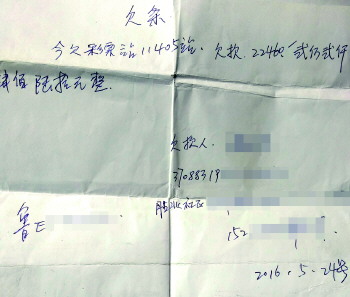 欠条.
今欠彩票站11405站. 欠款. 22460 弍万弍仟
肆佰陆拾元整.
欠款人.
37088319
社区
鲁E
152
2016.5-24号